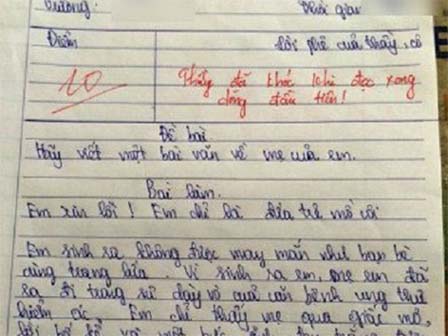 Trường: Thời gian
Điểm Lời phê của thầy, cô
10 Thầy đã khóc khi đọc xong
dòng đầu tiên!
Đề bài
Hãy viết một bài văn về mẹ của em.
Bài làm.
Em xin lỗi! Em chỉ là đứa trẻ mồ côi
Em sinh ra không được may mắn như bạn bè
cùng trang lứa. Vì sinh ra em, mẹ em đã
ra đi trong sự dày vò quả căn bệnh ung thư
hiểm ác. Em chỉ thấy mẹ qua giấc mơ,